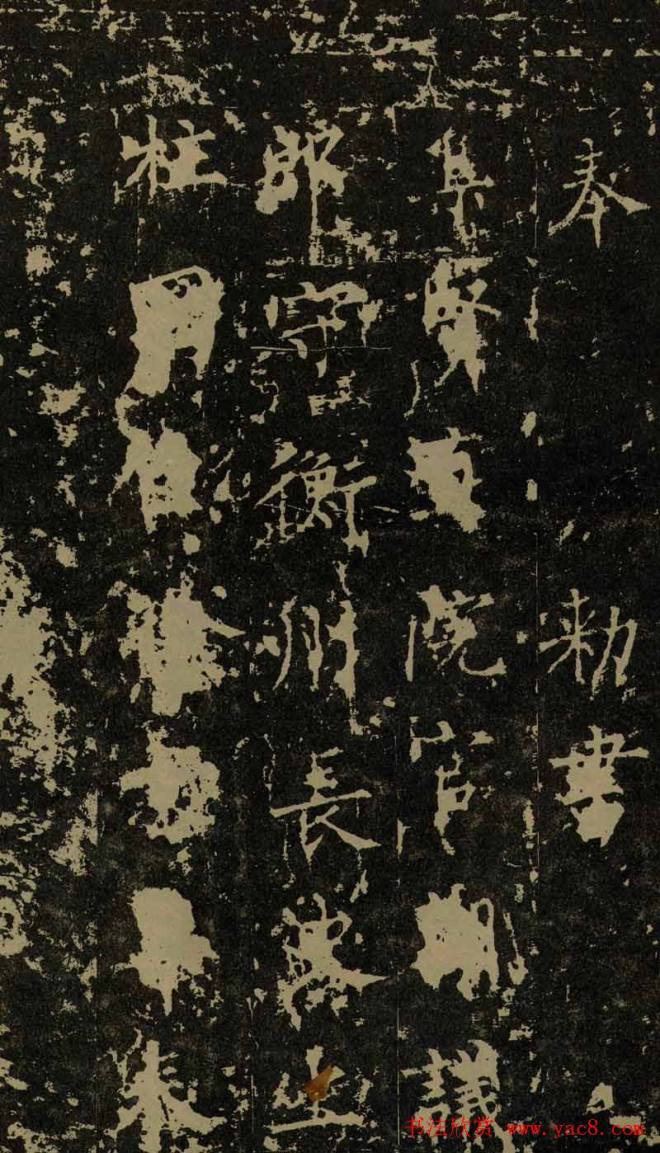 奉勅書
集賢直院官朝議
郎守衡州長史上
柱國臣徐方平奉
书法欣赏 www.yac8.com